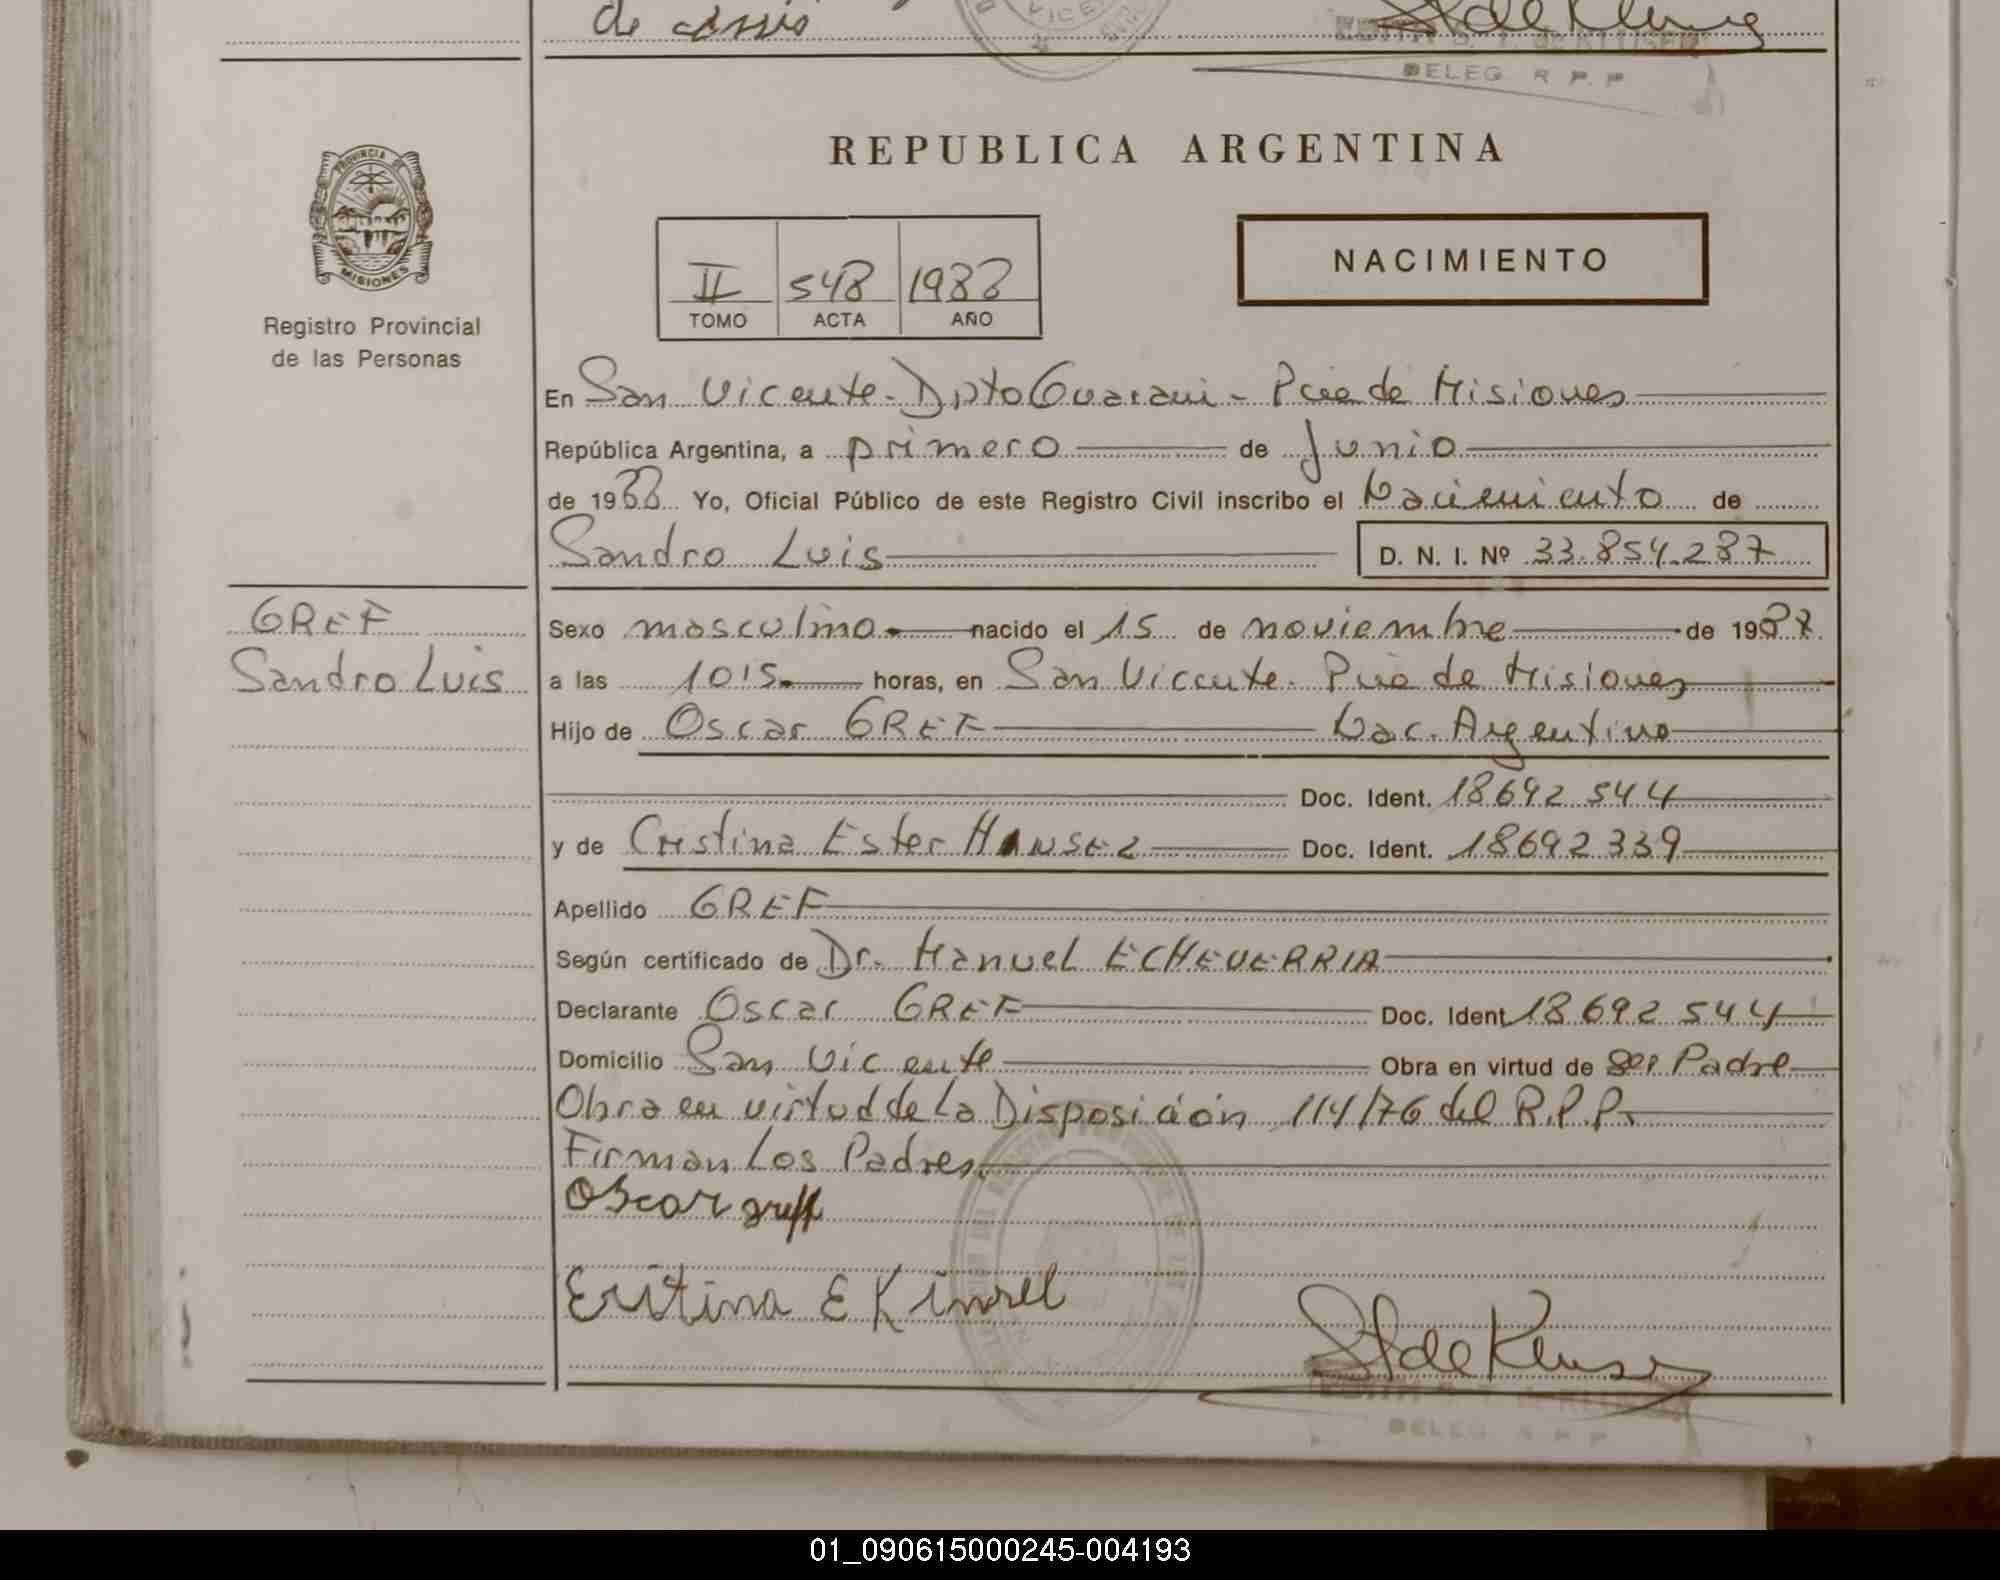 de
DELEG R P. P
REPUBLICA ARGENTINA
PROVINCIA DE
MISIONES
Registro Provincial
de las Personas
II 548 1988
TOMO ACTA AÑO
NACIMIENTO
En San Vicente - Dpto Guarani - Pcia de Misiones
República Argentina, a primero de Junio
de 1988 Yo, Oficial Público de este Registro Civil inscribo el Nacimiento de
Sandro Luis D. N. I. Nº 33.854.287
GREF
Sexo masculino nacido el 15 de noviembre de 1987
Sandro Luis
a las 1015 horas, en San Vicente - Pcia de Misiones
Hijo de Oscar GREF Nac. Argentino
Doc. Ident. 18692544
y de Cristina Ester Doc. Ident. 18692339
Apellido GREF
Según certificado de Dr. Manuel ECHEVERRIA
Declarante Oscar GREF Doc. Ident 18692544
Domicilio San Vicente Obra en virtud de ser Padre
Obra en virtud de La Disposición 114/76 del R.P.P.
Firman Los Padres.
Oscar greff
E
de
DELEG R P P
01_090615000245-004193